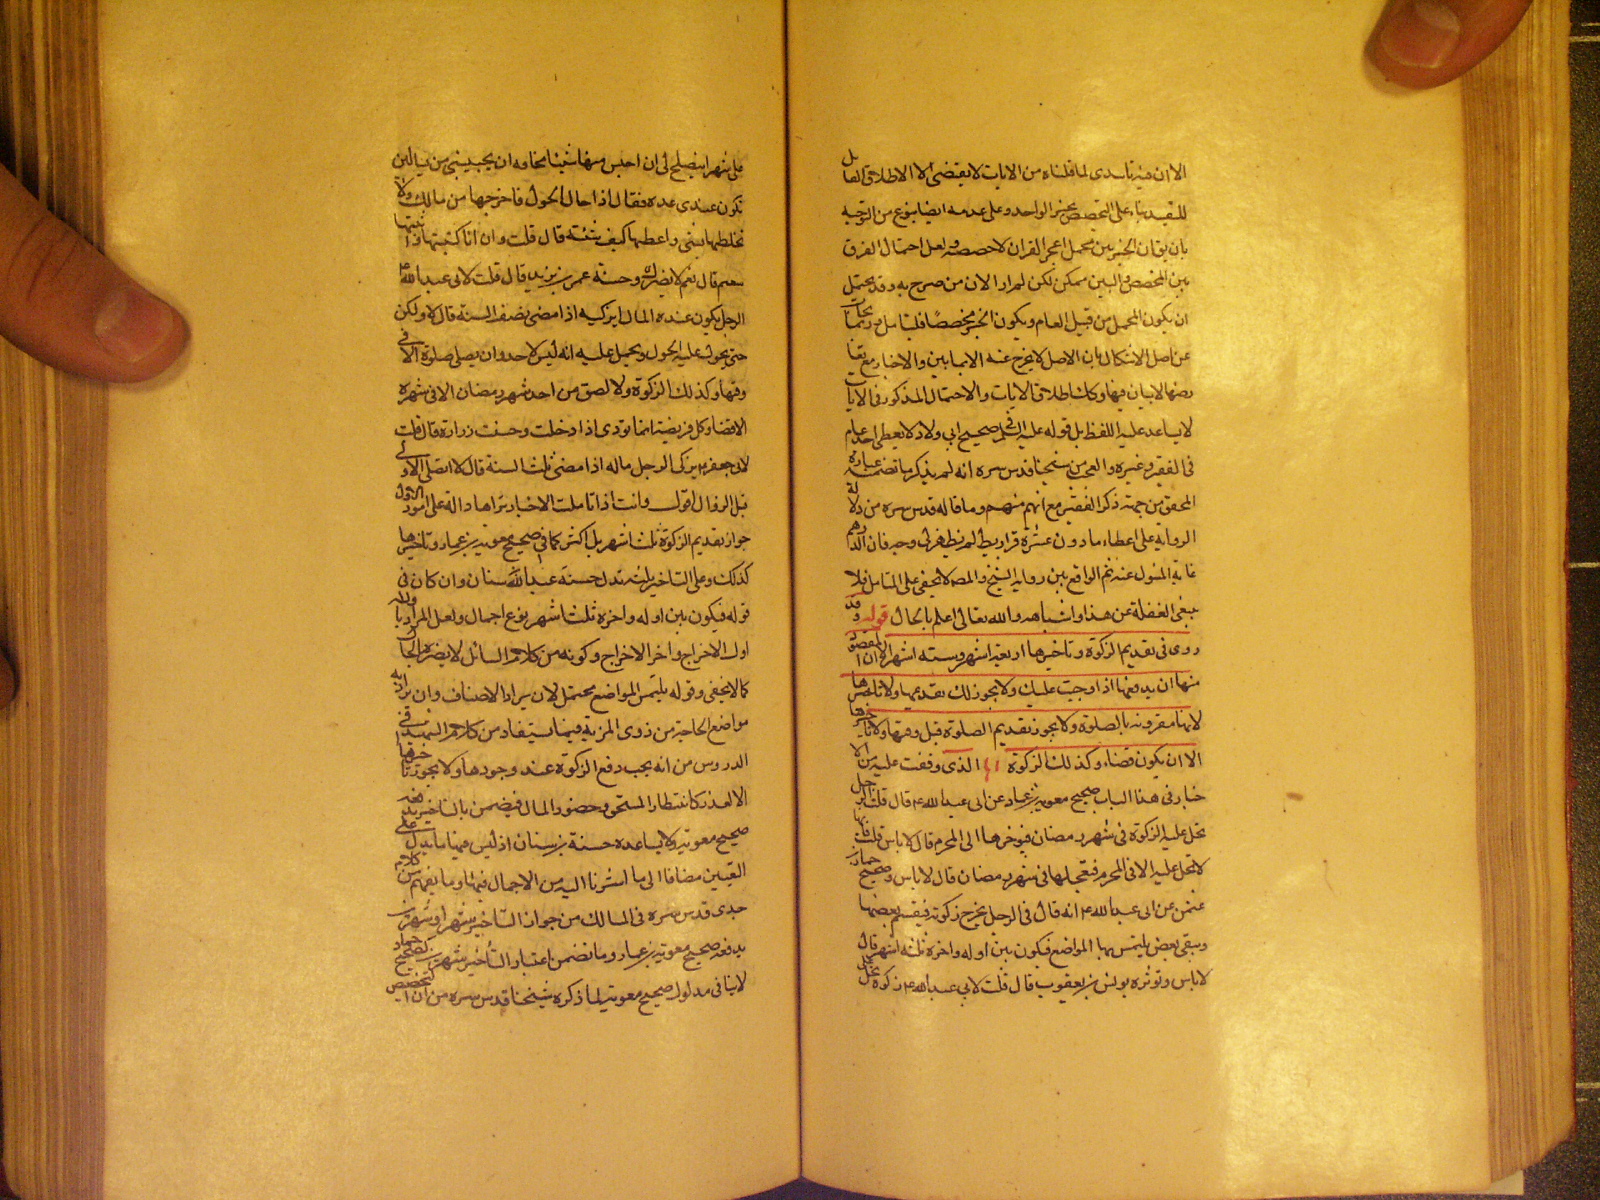 الا ان فيه تأييدى لما قلناه من الايات لا يقتضى الا الاطلاق القابل
للتقييد بناء على التخصيص بخبر الواحد وعلى عدمه ايضا بنوع من التوجيه
بان يقال الخبر بين مجمل
بين المخصص والمبين ممكن لكن لم ار الان من صرح به وقد يحتمل
ان يكون المجمل من قبيل العام ويكون الخبر مخصصا فليتامل
عن اصل الاشكال بان الاصل لا يخرج عنه الا بما يبين والاخبار مع تعا
رضها لا بيان فيها وكذلك اطلاق الايات والاحتمال المذكور فى الايات
لا يساعد عليه اللفظ بل قوله عليه السلم فى صحيح ابى ولاد لا يعطى احد عام
فى الفقير وغيره والعجب من شيخنا قدس سره انه لم يذكر ما تضمنته عبارة
المحقق من جهة ذكر الفقير مع انهم منهم وما قاله قدس سره من دلالة
الرواية على اعطاء ما دون عشرة قراريط لم يظهر لى وجهه فان الدراهم
غاية المسئول عنه نعم الواقع بين رواية الشيخ والمصـ لا يخفى على المتامل فلا
ينبغى الغفلة عن هذا واشباهه والله تعالى اعلم بالحال قوله وقد
روى فى تقديم الزكوة وتاخيرها اربعة اشهر وستة اشهر الا ان المقصود
منها ان يدفعها اذا وجبت عليك ولا يجوز لك تقديمها ولا تاخيرها
لانها مقرونة بالصلوة ولا يجوز تقديم الصلوة قبل وقتها ولا تاخيرها
الا ان يكون قضاء وكذلك الزكوة الذى وقفت عليه من الا
خبار فى هذا الباب صحيح معوية بن عمار عن ابى عبد الله ع قال قلت الرجل
تحل عليه الزكوة فى شهر رمضان فيؤخرها الى المحرم قال لا باس قلت فانها
لا تحل عليه الا فى المحرم فيعجلها فى شهر رمضان قال لا باس وصحيح حماد بن
عثمن عن ابى عبد الله ع انه قال فى الرجل يخرج زكوته فيقسم بعضها
ويبقى بعض يلتمس بها المواضع فيكون بين اوله واخره ثلثة اشهر قال
لا باس وتوثره يونس بن يعقوب قال قلت لابى عبد الله ع زكوة تحل
على شهر ايصلح لى ان احبس منها شيئا مخافة ان يجيئنى من يسالنى
تكون عندى عدة فقال اذا حال الحول فاخرجها من مالك ولا
تخلطها بشئ واعطها كيف شئت قال قلت وان انا كتبتها واثبتها
قال نعم لا يضرك وحسنة عمر بن يزيد قال قلت لابى عبد الله ع
الرجل يكون عنده المال ايزكيه اذا مضى نصف السنة قال لا ولكن
حتى يحول عليه الحول ويحل عليه انه ليس لاحد ان يصلى صلوة الا فى
وقتها وكذلك الزكوة ولا يصوم احد شهر رمضان الا فى شهره
الا قضاء وكل فريضة انما تؤدى اذا دخلت وحسنة زرارة قال قلت
لابى جعفر ع ايزكى الرجل ماله اذا مضى ثلث السنة قال لا ايصلى الاولى
قبل الزوال اقول وانت اذا تاملت الاخبار تراها دالة على امور الاول
جواز تقديم الزكوة ثلثة اشهر بل اكثر كما فى صحيح معوية بن عمار وتاخيرها
كذلك وعلى التاخير ثلثة تدل حسنة عبد الله بن سنان وان كان فى
قوله فيكون بين اوله واخره ثلثة اشهر نوع اجمال ولعل المراد باوله
اول الاخراج واخر الاخراج وكونه من كلام السائل لا يضر بالحال
كما لا يخفى وقوله يلتمس المواضع محتمل لان يراد الاصناف وان يراد به
مواضع الحاجة من ذوى المزية فيما يستفاد من كلام الشهيد فى
الدروس من انه يجب دفع الزكوة عند وجودها ولا يجوز تاخيرها
الا لعذر كانتظار المستحق وحضور المال فيضمن بالتاخير
صحيح معوية ولا يساعده حسنة بن سنان اذ ليس فيها ما يدل على
التعيين مضافا الى ما اشرنا اليه من الاجمال فيها وما يفهم من كلام
جدى قدس سره فى المسالك من جواز التاخير شهرا وشهرين
يدفعه صحيح معوية بن عمار وما تضمن اعتبار التاخير شهرين كصحيح حماد
لا ينافى مدلول صحيح معوية لما ذكره شيخنا قدس سره من ان التخصيص